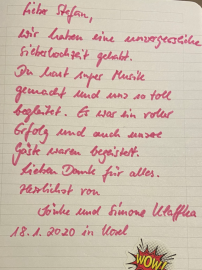 Lieber Stefan,
wir haben eine unvergessliche
Silberhochzeit gehabt.
Du hast super Musik
gemacht und uns so toll
begleitet. Es war ein voller
Erfolg und auch unsere
Gäste waren begeistert.
Lieben Dank für alles.
Herzlichst von
und Simone
18.1.2020 in
WOW!